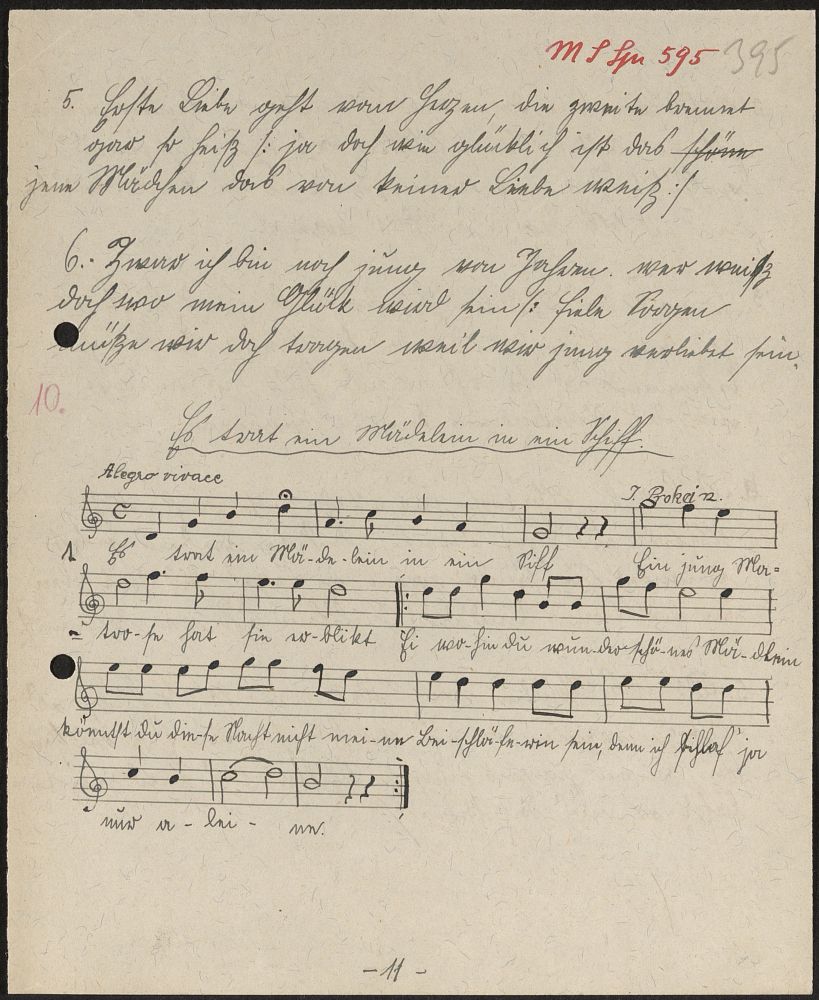 M S Spr 595 395
5. Erste Liebe geht vom Herzen, die zweite brennet
gar so heiß /: ja doch wie glücklich ist das schöne
jene Mädchen das von keiner Liebe weiß :/
6. Zwar ich bin noch jung von Jahren. wer weiß
doch wo mein Glück wird sein /: fiele Sorgen
müße wir doch tragen weil wir jung verliebt sein.
10.
Es trat ein Mädelein in ein Schiff.
Alegro vivace
J. Bokan.
1 Es trat ein Mä-de-lein in ein Siff Ein jung Ma=
= troo-se hat sie er-blikt Ei wo-hin du wun-der-schö-nes Mä-dlein
könntst du die-se Nacht nicht mei-ne Bei-schlä-fe-rin sein, denn ich schlaf ja
nur a - lei - ne.
- 11 -